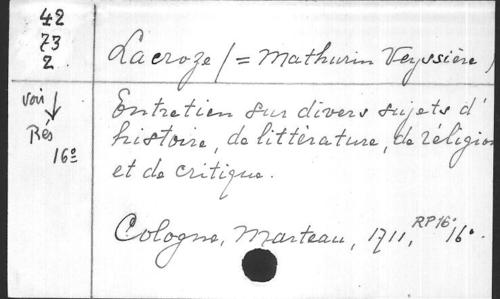 42
73
2
Lacroze (= Mathurin Veyssière)
voir ↓
Rés
16º
Entretien sur divers sujets d'
histoire, de littérature, de réligion
et de critique.
Cologne, Marteau, 1711, RP16º 16º.